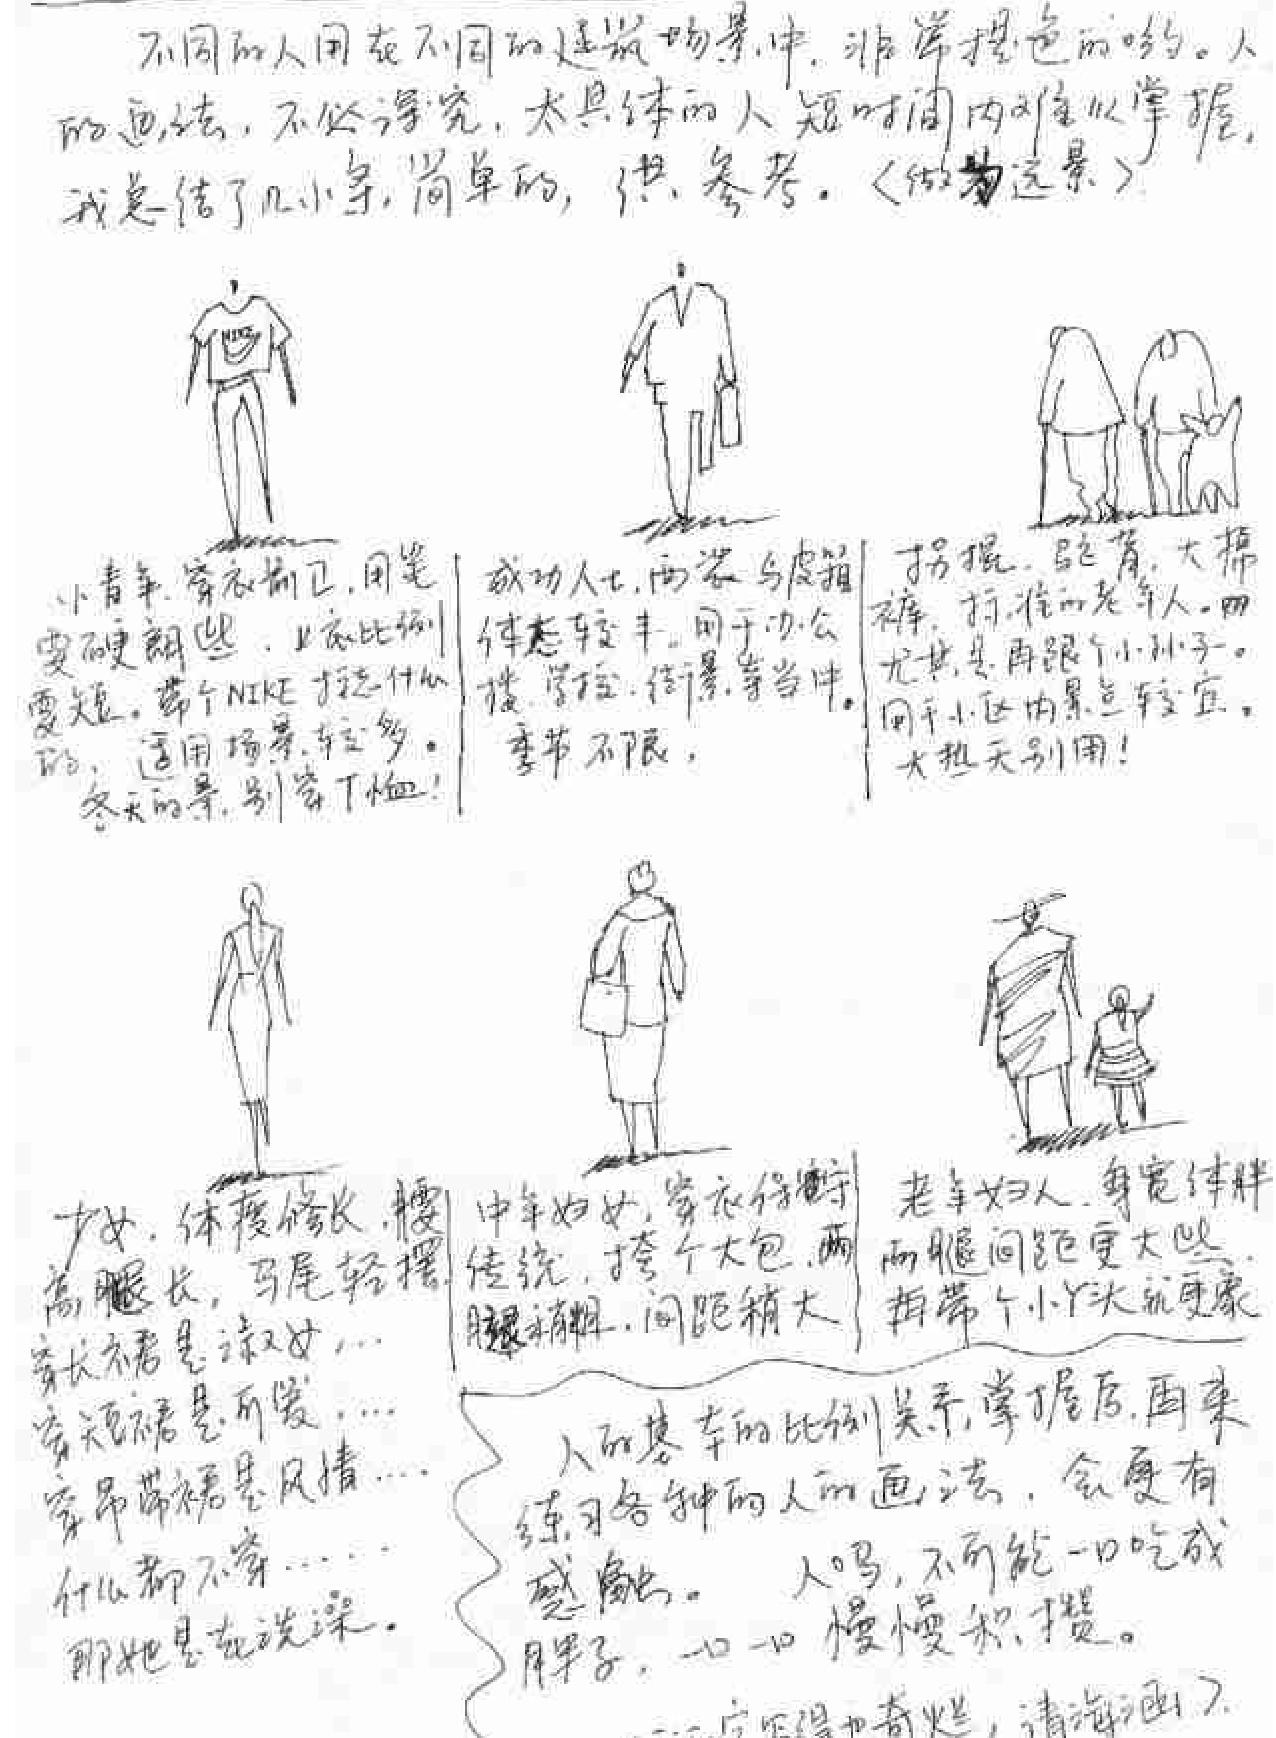 不同的人用在不同的建筑场景中，非常提色的哟。人
的画法，不必深究，太具体的人短时间内难以掌握，
我总结了几小条，简单的，供参考。〈做为远景〉
NIKE
小青年，穿衣前卫，用笔
要硬朗些，上衣比例
要短。带个NIKE标志什么
的，适用场景较多。
冬天的景，别穿T恤！
成功人士，西装与皮箱
体态较丰。用于办公
楼，学校，街景等当中。
季节不限，
拐棍，驼背，大棉
裤，标准的老年人。
尤其是再跟个小孙子。
用于小区内景点较宜。
大热天别用！
少女，体瘦修长，腰
高腿长，马尾轻摆
穿长裙是淑女...
穿短裙是可爱....
穿吊带裙是风情....
什么都不穿......
那她是在洗澡。
中年妇女，穿衣保守
传统，挎个大包，两
腿稍粗，间距稍大
老年妇人，身宽体胖
两腿间距更大些
再带个小丫头就更象
人的基本的比例关系，掌握后，再来
练习各种的人的画法，会更有
感触。 人吗，不可能一口吃成
胖子，一口一口慢慢积攒。
写得也奇烂，请海涵）